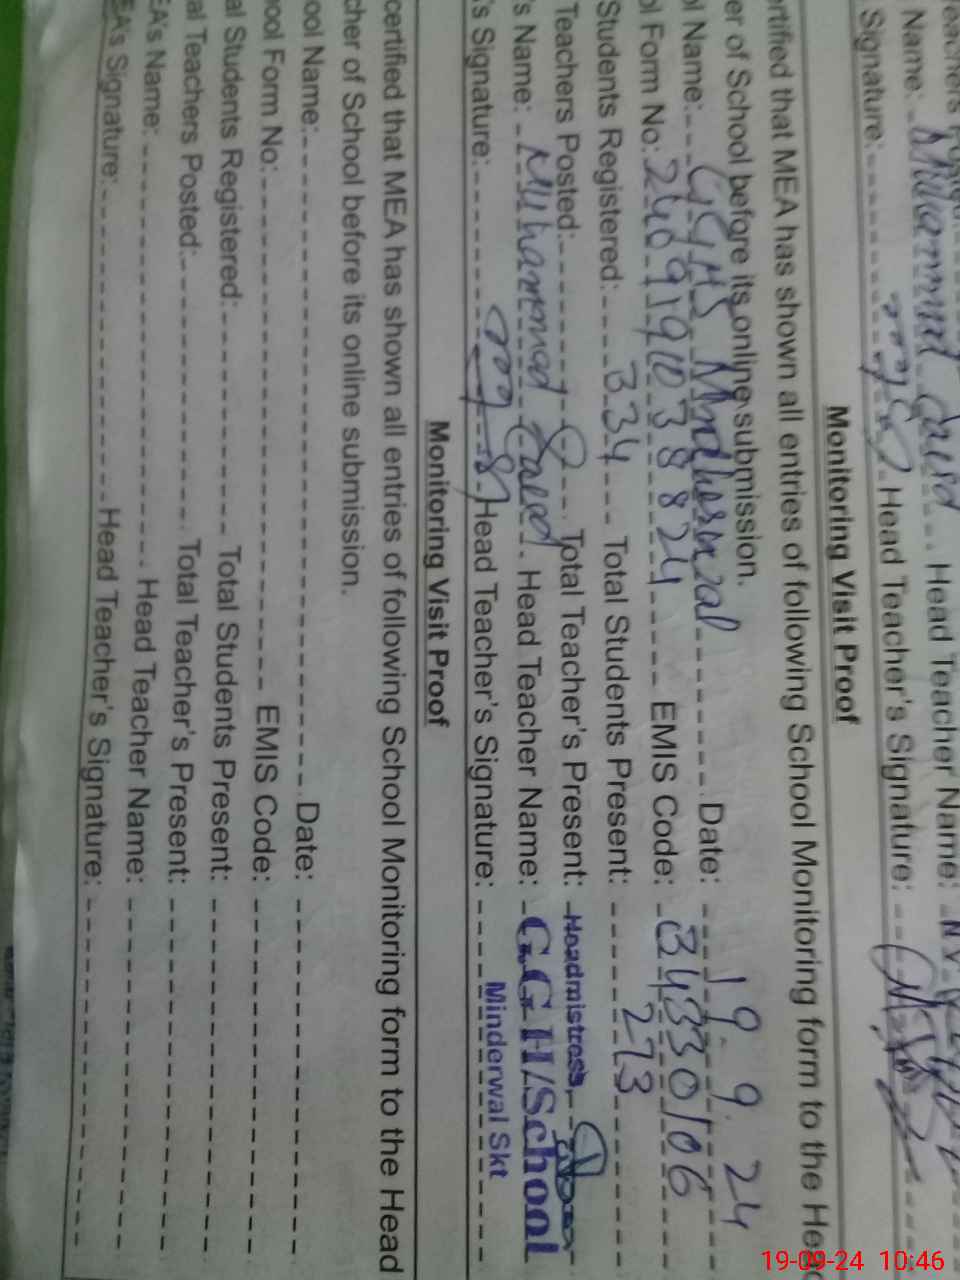 Name: Muhammad Saeed Head Teacher Name:
Signature: Head Teacher's Signature:
Monitoring Visit Proof
ertified that MEA has shown all entries of following School Monitoring form to the Head
er of School before its online submission.
l Name: GGHS Minderwal Date: 19.9.24
ol Form No: 2409191038824 EMIS Code: 34330106
Students Registered: 334 Total Students Present: 273
Teachers Posted: Total Teacher's Present: Headmistress
's Name: Muhammad Saeed Head Teacher Name: G.G.H/School
's Signature: Head Teacher's Signature: Minderwal Skt
Monitoring Visit Proof
certified that MEA has shown all entries of following School Monitoring form to the Head
cher of School before its online submission.
ool Name: Date:
ool Form No.: EMIS Code:
al Students Registered: Total Students Present:
al Teachers Posted: Total Teacher's Present:
EA's Name: Head Teacher Name:
EA's Signature: Head Teacher's Signature:
19-09-24 10:46